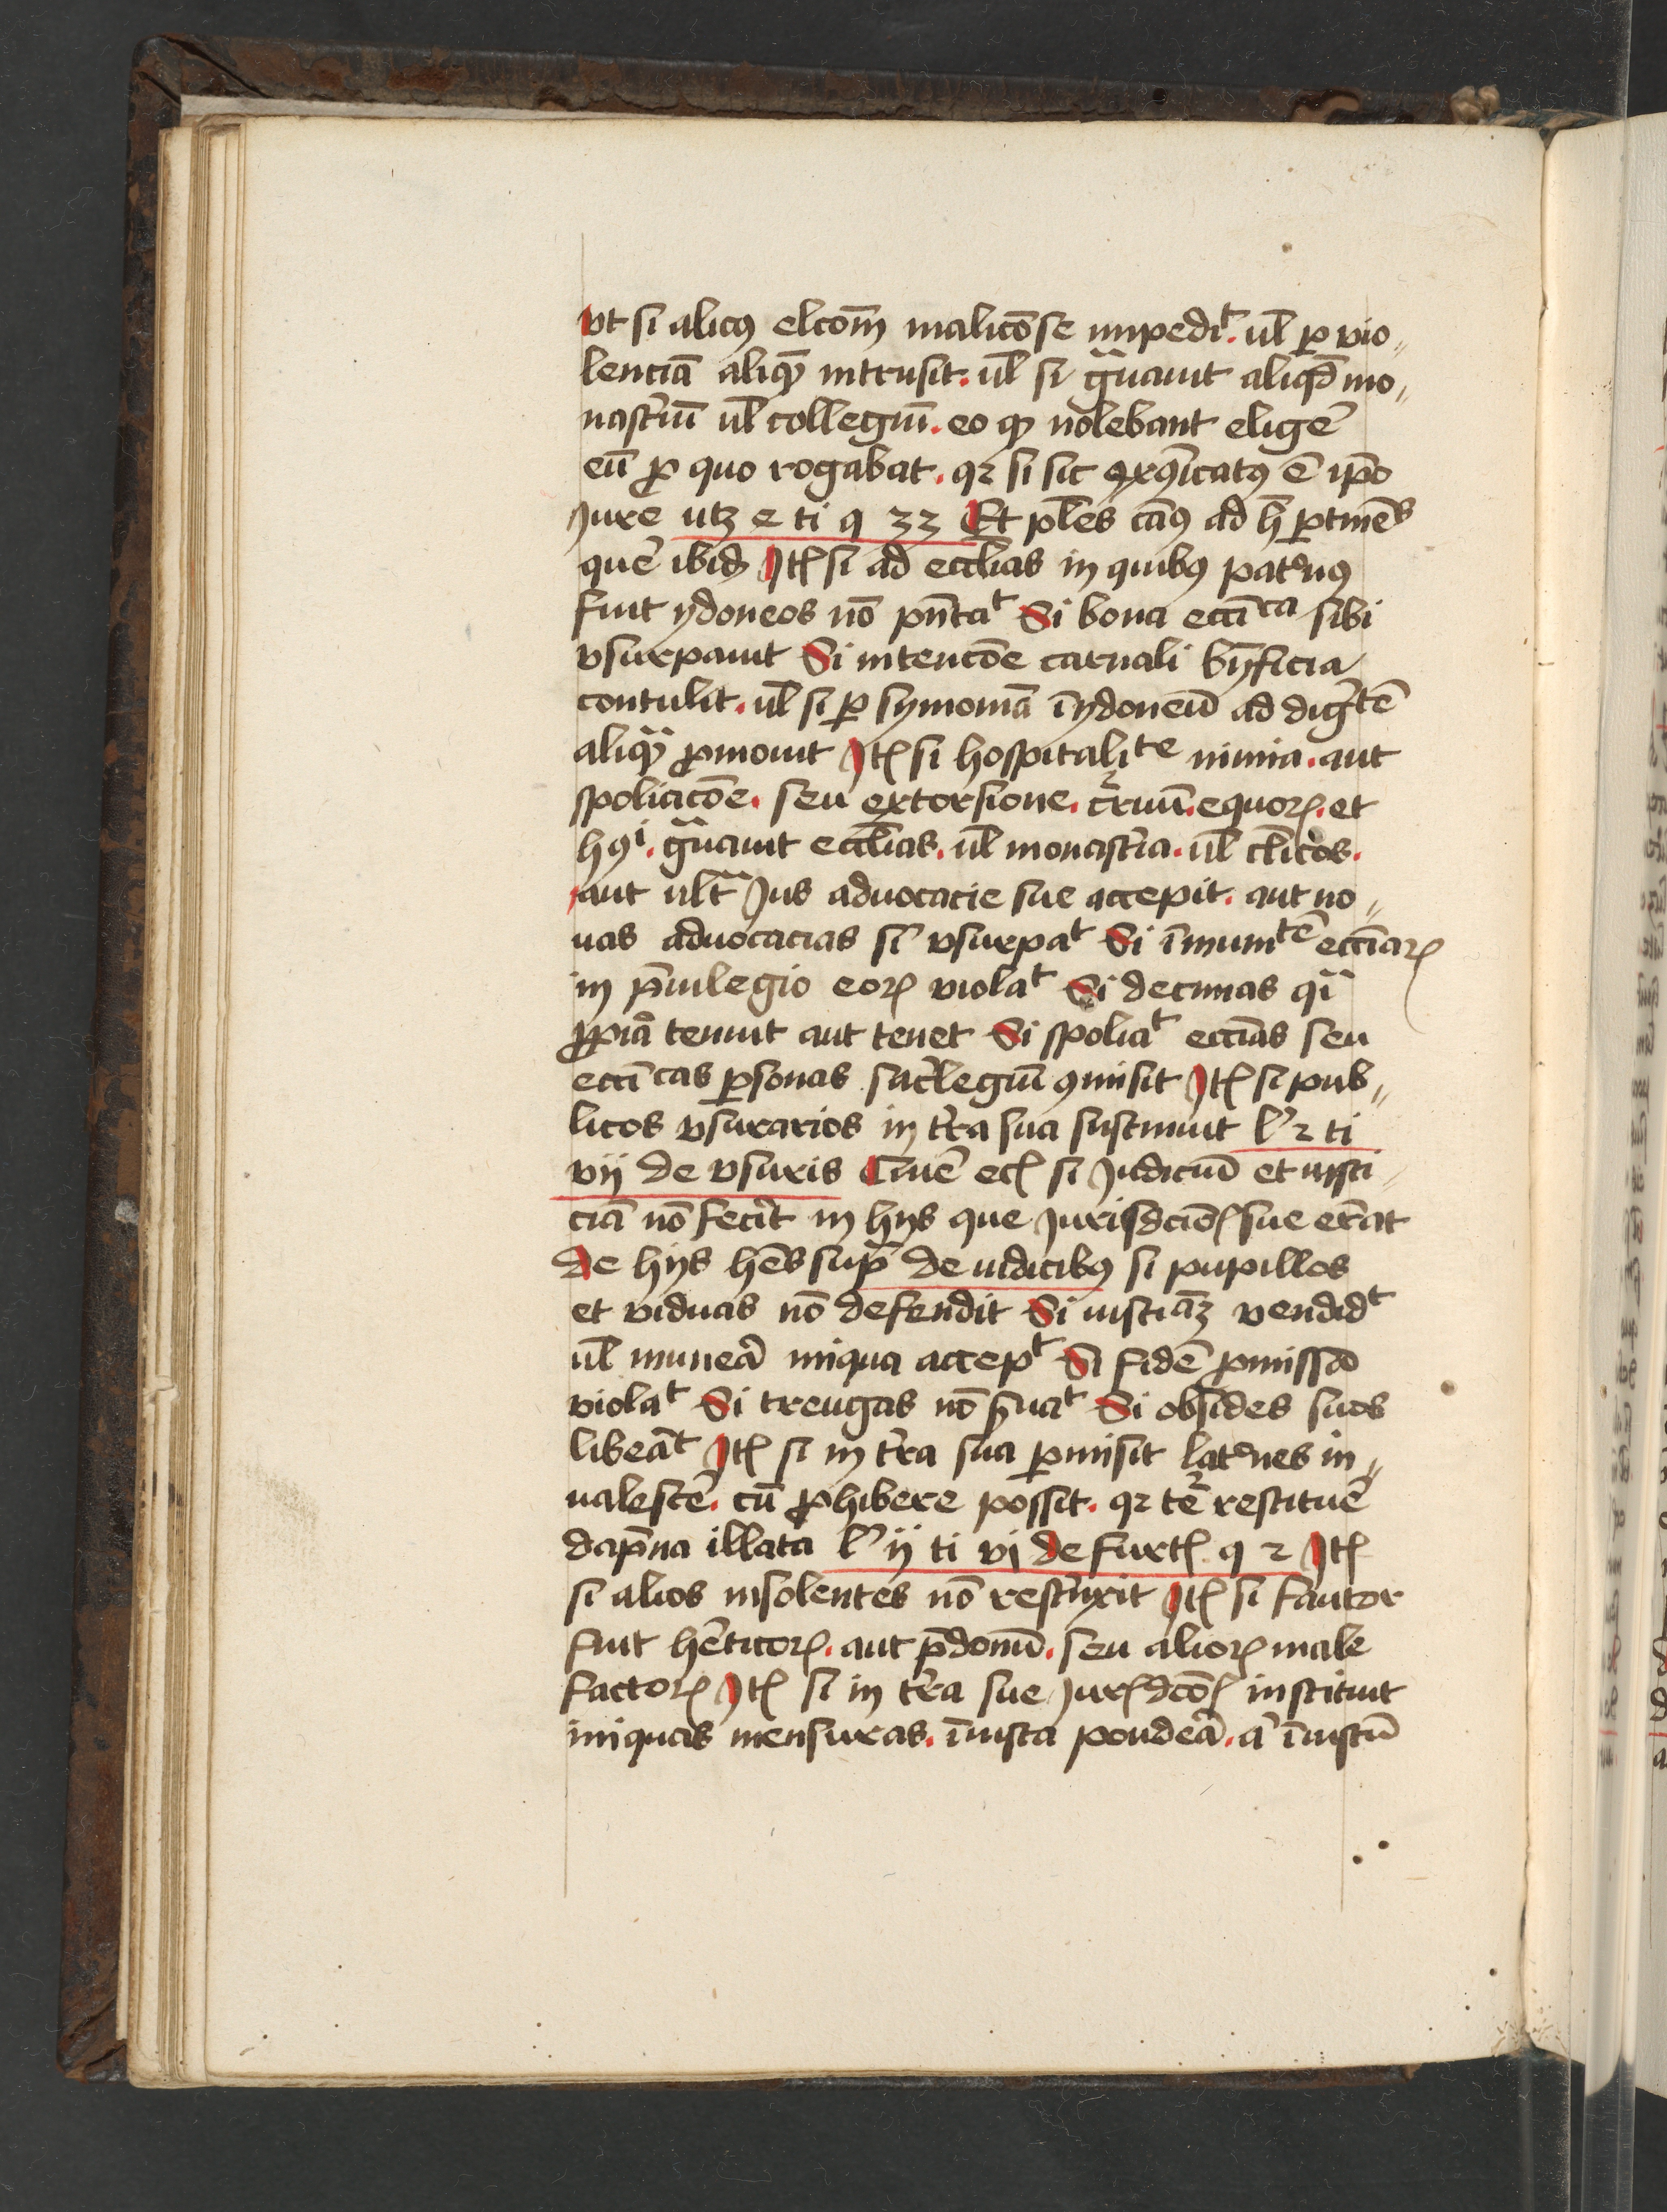 vt si alicꝰ elcōm̄ maliciōse impediᵗ. ul̄ ꝑ vio〃
lenciā aliqꝫ intrusit. ul̄ si gͣuauit aliqd̄ mo〃
nastꝛiū ul̄ collegiū. eo ꝙ nolebant eligē
eū ꝓ quo rogabat. qꝛ si sic exꝯicatꝰ ē ip̄o
Jure utꝫ e ti q 33 Et pl̄es cāꝰ ad h̄ ꝑtinēˢ
quē ibid Itē si ad eccl̄ias in quibꝰ patꝛonꝰ
fuit ydoneos nō pn̄taᵗ Si bona eccīᶜᵃ sibi
vsurpauit Si intencōe carnali bn̄ficia
contulit. ul̄ si ꝑ symoniā īydoneū ad digͥᵗē
aliqͣꝫ ꝓmouit Itē si hospitaliᵗᵉ nimia. aut
spoliacōe. seu extorsione. cͬruū. equoꝝ. et
hꝯⁱ. gͣuauit eccl̄ias. ul̄ monastꝛia. ul̄ cl̄icos.
aut ultͣ Jus aduocacie sue accepit. aut no〃
uas aduocacias sͥ vsurpaᵗ Si īmuniᵗē ecciaꝝ
in pͥuilegio eoꝝ violaᵗ Si decimas qͣi
ꝓpͥā tenuit aut tenet Si spoliaᵗ ecciās seu
eccīcas ꝑsonas sacͥlegiū ꝯmisit Itē si pub〃
licos vsurarios in tͬra sua sustinuit lͦ 2 ti
vij de vsuris Ciuē ecē si Judiciū et iusti
ciā nō fecit in hijs que Jurisdciōē sue erāt
de hijs hēs supͣ de iudicibꝰ si pupillos
et viduas nō defendit Si iusticiāꝫ vendidᵗ
ul̄ muneā iniqua accepᵗ Si fidē ꝓmissā
violaᵗ Si treugas nō ẜuaᵗ Si obsides suos
libeāᵗ Itē si in tͬra sua ꝑmisit latꝛones in〃
ualescē. cū ꝓhibere possit. qꝛ tēͬ restituē
dāpna illata lͦ ij ti vj de furtē q 2 Itē
si alios insolentes nō restͥnxit Itē si fautor
fuit hēticoꝝ. aut pͣdonū. seu alioꝝ male
factoꝝ Itē si in tͬra sue Jurēdcōē instituit
iniquas mensuras. īiusta pondeā. aͥ īiustū